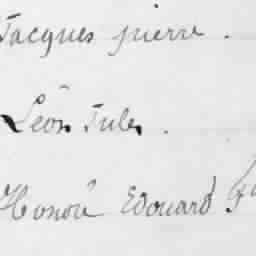 Jacques pierre .
Léon Jules .
Honoré Edouard